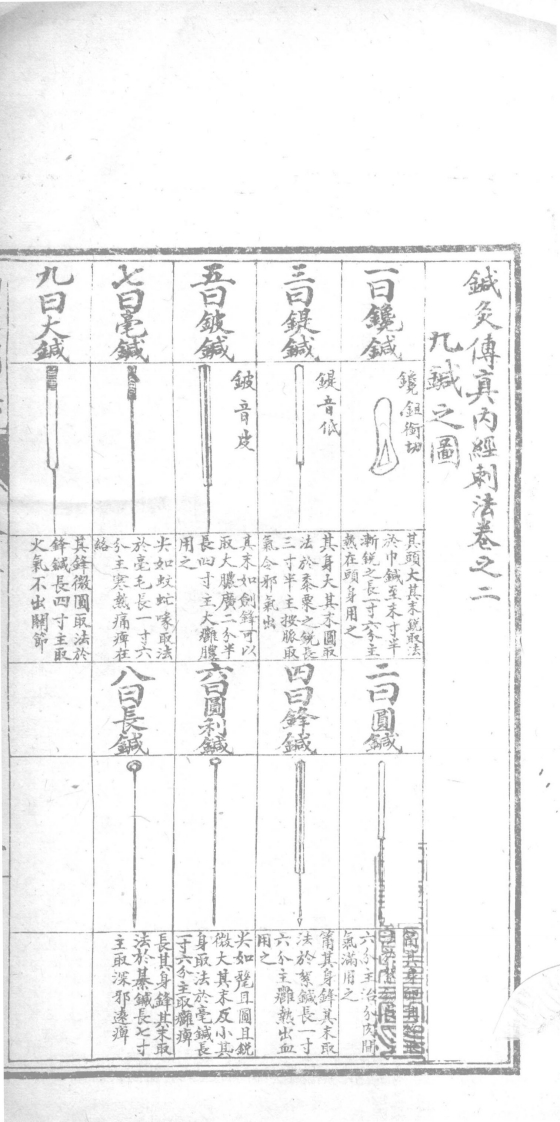 鍼灸傳真內經刺法卷之二
九鍼之圖
一曰鑱鍼
鑱鉏銜切
其頭大其末銳取法
於巾鍼至末寸半
漸銳之長寸六分主
熱在頭身用之
二曰圓鍼
六分主治分肉間
氣滿用之
三曰鍉鍼
鍉音低
其身大其末圓取
法於黍粟之銳長
三寸半主按脈取
氣令邪氣出
四曰鋒鍼
筩其身鋒其末取
法於絮鍼長一寸
六分主癰熱出血
用之
五曰鈹鍼
鈹音皮
其末如劍鋒可以
取大膿廣二分半
長四寸主大癰膿
用之
六曰圓利鍼
尖如氂且圓且銳
微大其末反小其
身取法於毫鍼長
一寸六分主取癰痺
七曰毫鍼
尖如蚊虻喙取法
於毫毛長一寸六
分主寒熱痛痺在
絡
八曰長鍼
長其身鋒其末取
法於綦鍼長七寸
主取深邪遠痺
九曰大鍼
其鋒微圓取法於
鋒鍼長四寸主取
火氣不出關節